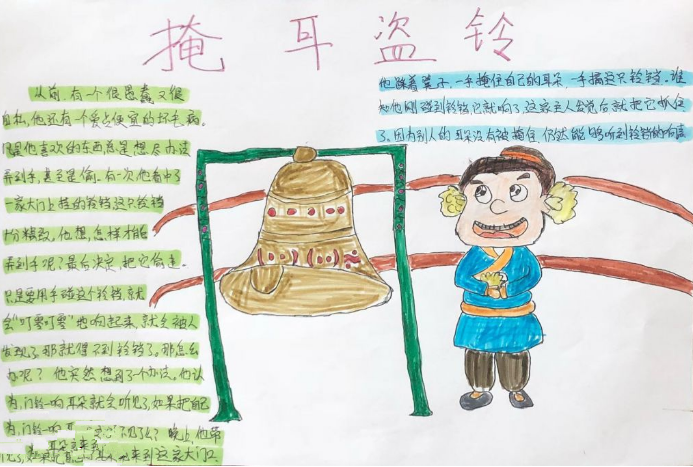 掩耳盗铃
从前,有一个很愚蠢又很
自私,他还有一个爱占便宜的坏毛病。
凡是他喜欢的东西总是想尽办法
弄到手,甚至是偷。有一次,他看中了
一家大门上挂的铃铛,这只铃铛
十分精致,他想,怎样才能
弄到手呢?最后决定,把它偷走。
只要用手碰这个铃铛,就
会"叮零叮零"地响起来,就会被人
发现了,那就得不到铃铛了。那怎么
办呢?他突然想到了个办法。他认
为,门铃一响耳朵就会听见了,如果把
为,门铃一响
耳朵
晚上,他
来到这家大门口
他踩着凳子,一手掩住自己的耳朵,一手摘这只铃铛。谁
知他刚碰到铃铛,它就响了,这家主人发觉后就把它抓住
了,因为别人的耳朵没有被掩住,仍然能够听到铃铛的响声